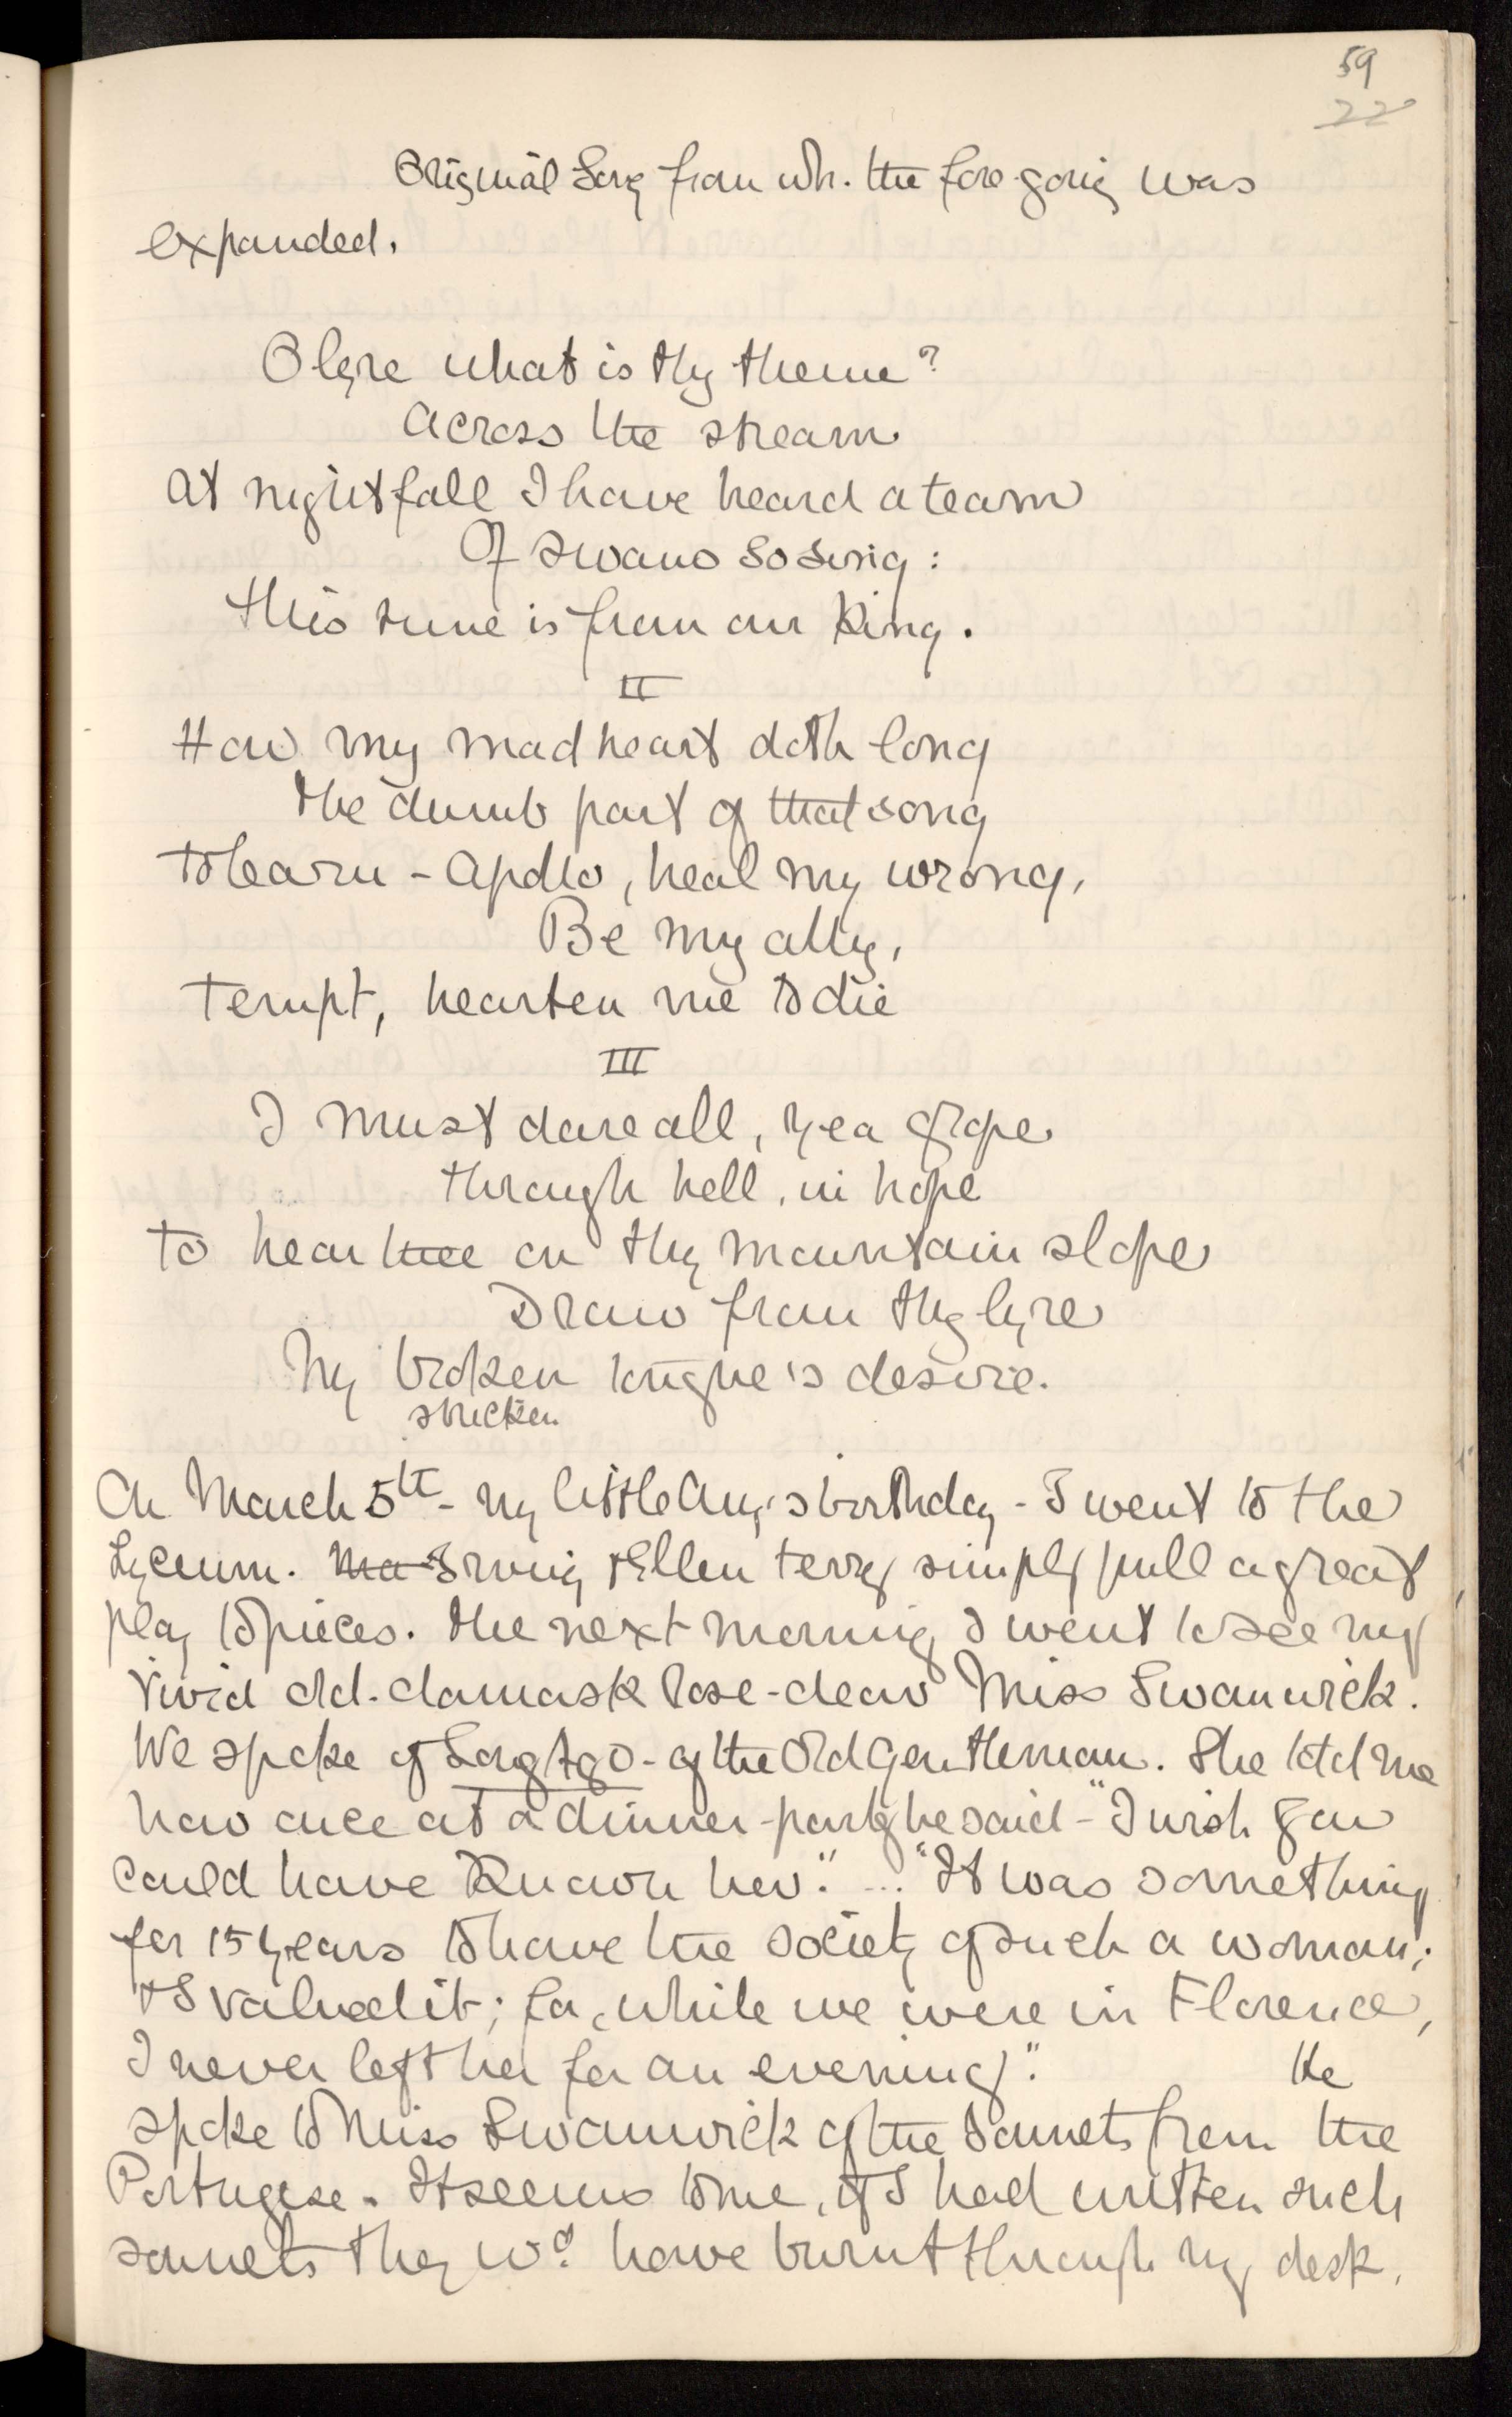 59
22
Original Song from wh. the fore-going was
expanded.
O lyre what is thy theme?
Across the stream
At nightfall I have heard a team
Of swans so sing:
This tune is from our King.
II
How my mad heart doth long
The dumb part of that song
To learn - Apollo, heal my wrong,
Be my ally,
Tempt, hearten me to die
III
I must dare all, yea grope
Through hell, in hope
To hear thee on thy mountain slope
Draw from thy lyre
My broken tongue's desire.
stricken
On March 5th - my little Amy's birthday - I went to the
Lyceum. Ma Irving & Ellen Terry simply pull a great
play to pieces. The next morning I went to see my
vivid old-damask rose - dear Miss Swanwick.
We spoke of - of the Old Gentleman. She told me
how once at a dinner-party he said - "I wish you
could have known her." ... "It was something
for 15 years to have the society of such a woman;
& I valued it; for, while we were in Florence,
I never left her for an evening." He
spoke to Miss Swanwick of the Sonnets from the
Portugese. It seems to me, if I had written such
sonnets they wd. have burnt through my desk.